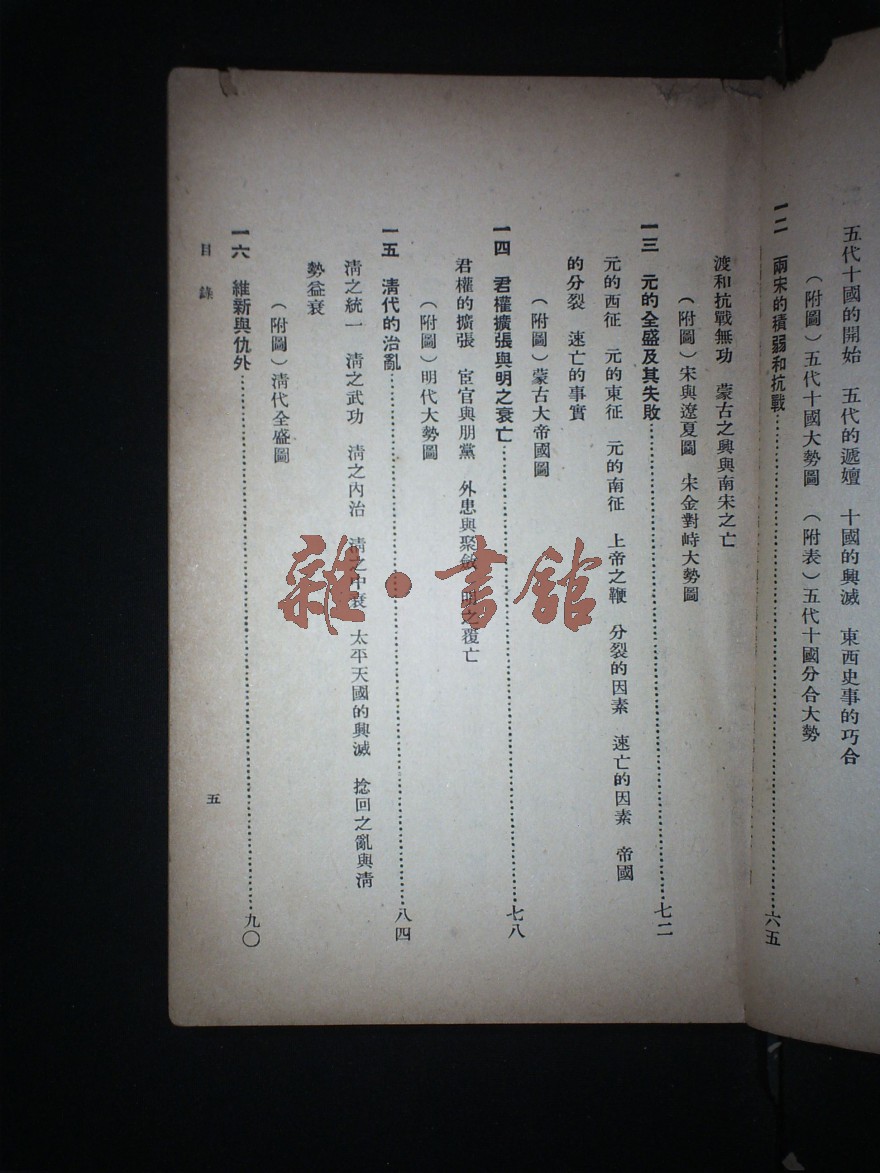 五代十國的開始　五代的遞嬗　十國的興滅　東西史事的巧合
（附圖）五代十國大勢圖　（附表）五代十國分合大勢
一二　兩宋的積弱和抗戰……六五
渡和抗戰無功　蒙古之興與南宋之亡
（附圖）宋與遼夏圖　宋金對峙大勢圖
一三　元的全盛及其失敗……七二
元的西征　元的東征　元的南征　上帝之鞭　分裂的因素　速亡的因素　帝國
的分裂　速亡的事實
（附圖）蒙古大帝國圖
一四　君權擴張與明之衰亡……七八
君權的擴張　宦官與朋黨　外患與聚斂　明之覆亡
（附圖）明代大勢圖
一五　清代的治亂……八四
清之統一　清之武功　清之內治　清之中衰　太平天國的興滅　捻回之亂與清
勢益衰
（附圖）清代全盛圖
一六　維新與仇外……九〇
目錄　五
雜·書館